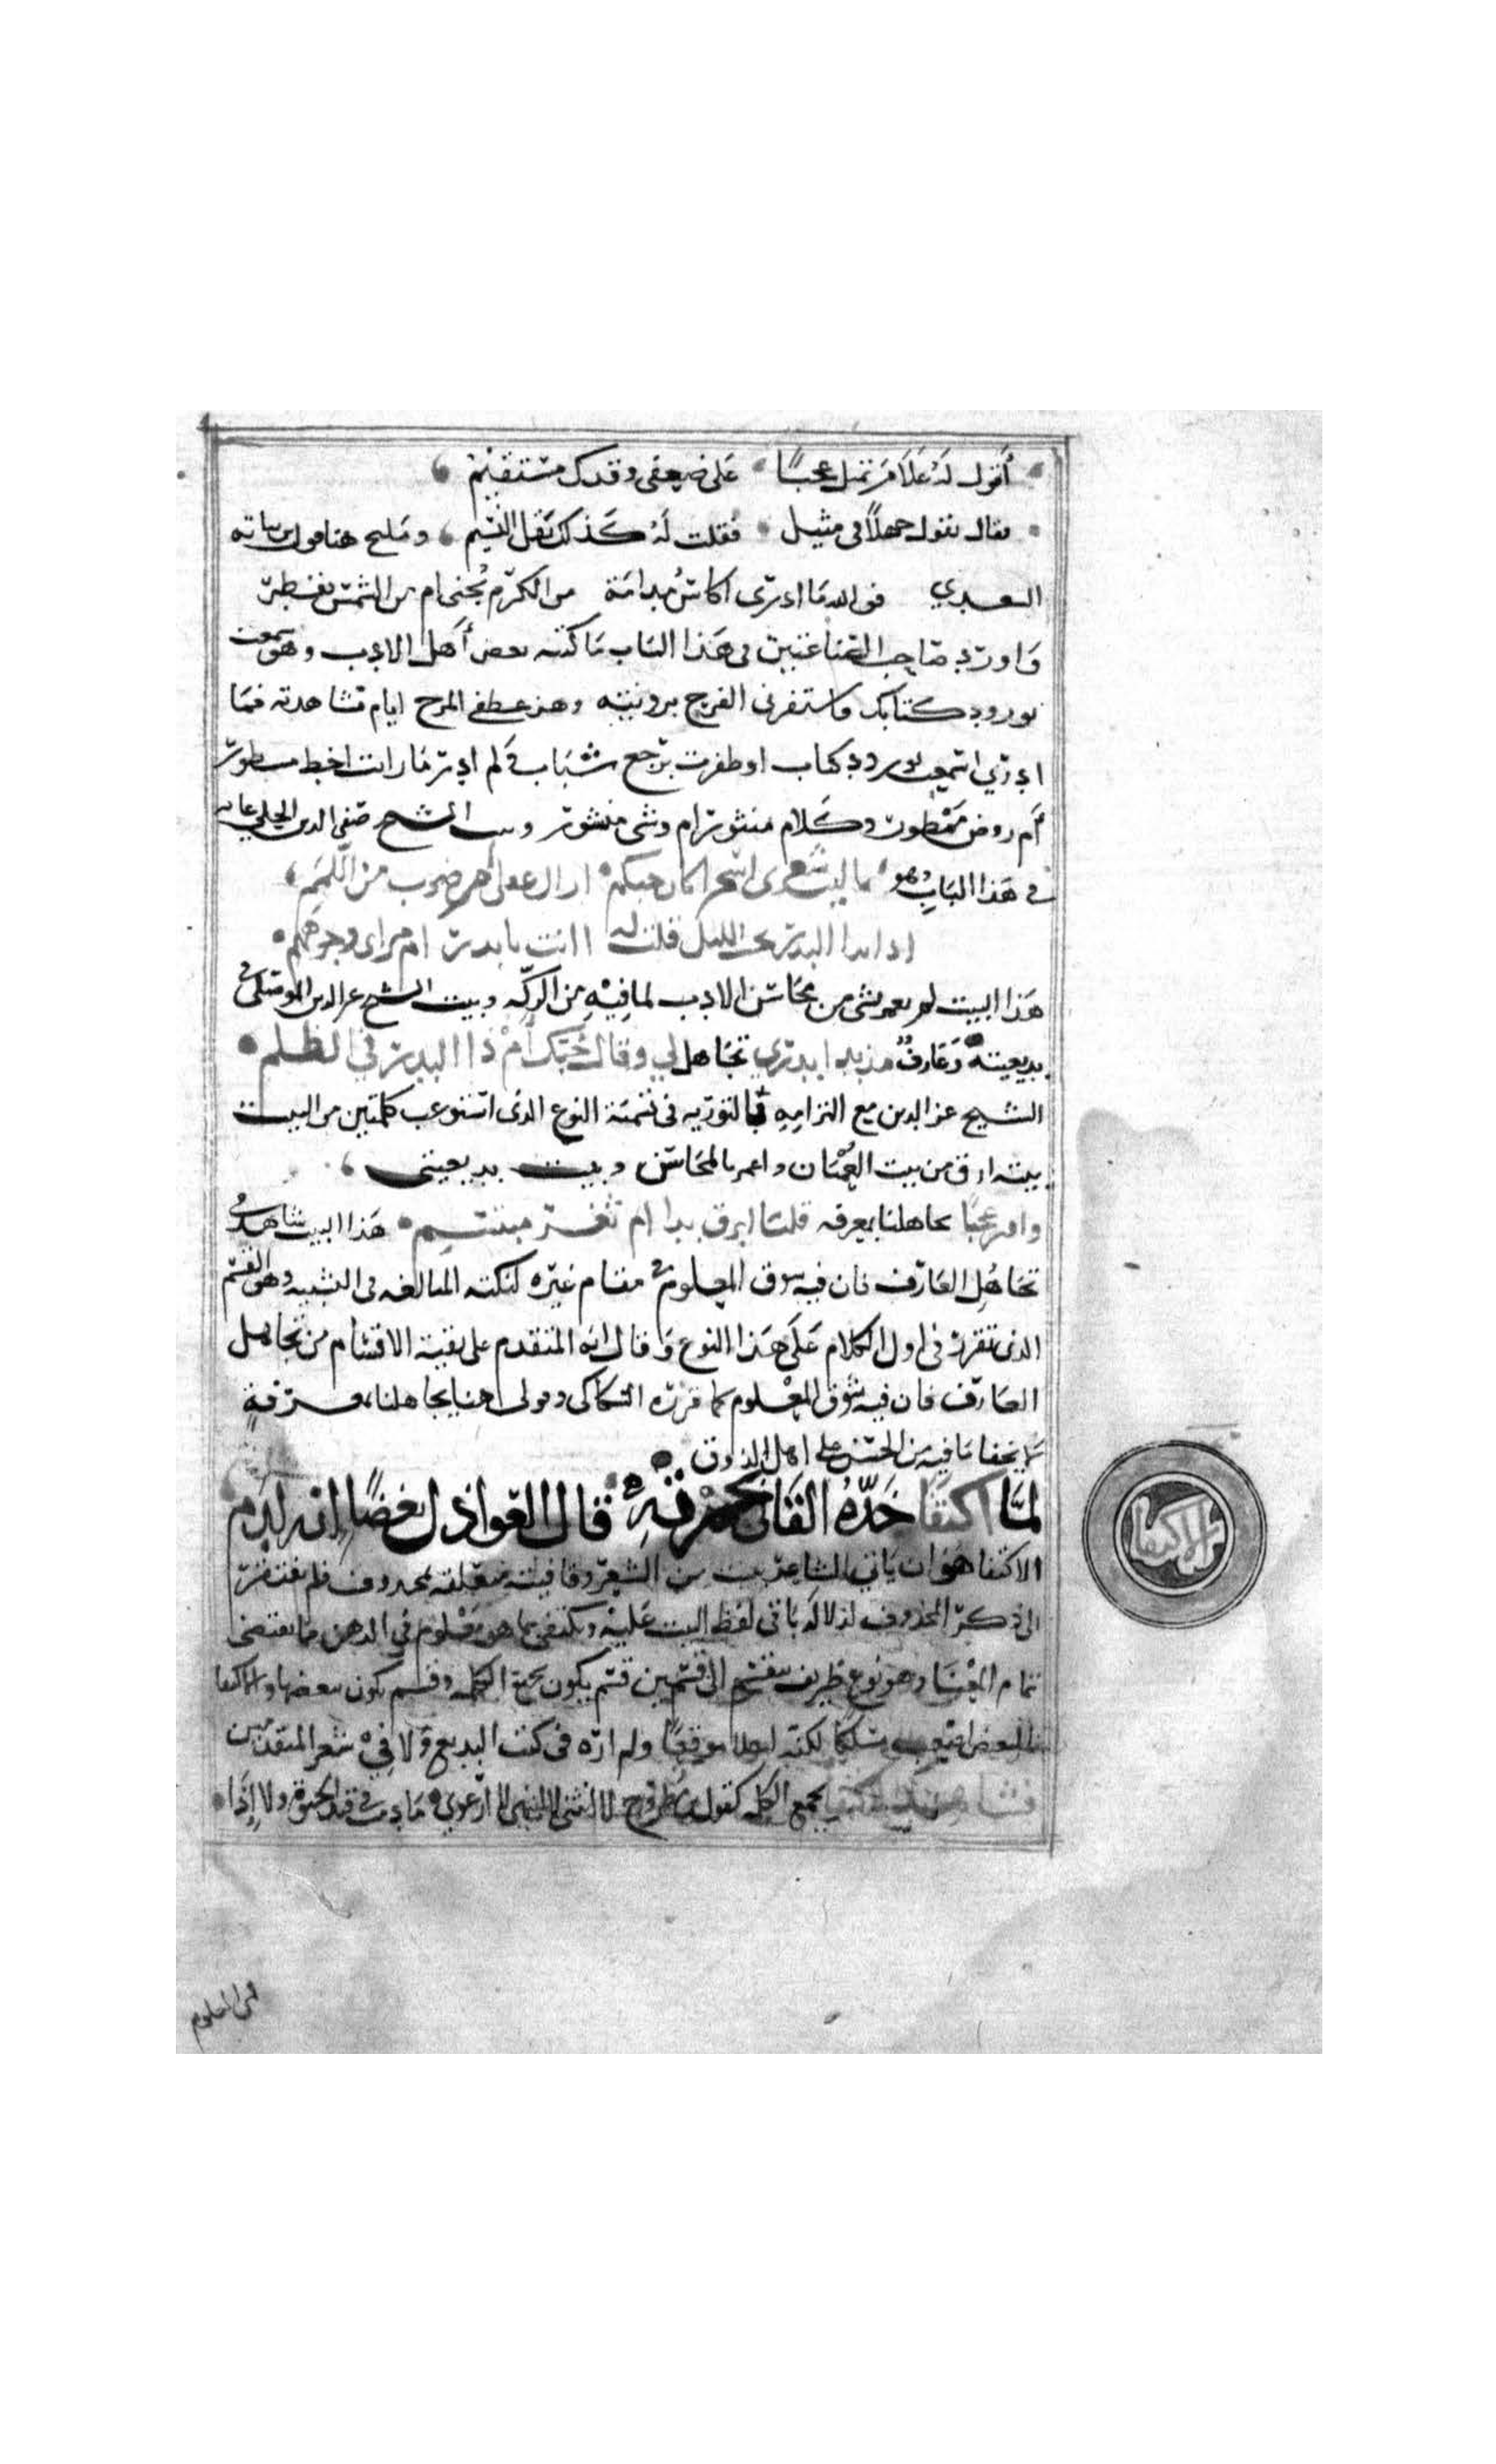 أقول له علام تميل عجبًا على ضعفى وقدك مستقيم
فقال تقول جهلاً فى مثيل فقلت له كذلك نقل النسيم ومليح هنا قول ابن نباته
السعدي فوالله ما ادرى اكاس مدامة من الكرم تجنى ام من الشمس تعتصر
واورد صاحب الصناعتين فى هذا الباب ما كتبه بعض أهل الادب وهو سمعت
بورود كتابك فاستفزنى الفرح برؤيته وهز عطفي المرح ايام مشاهدته فما
ادرى اسمعت بورود كتاب او ظفرت برجع شباب ولم ادر ما رايت اخط مسطور
أم روض ممطور وكلام منثور ام وشى منشور وبيت الشيخ صفى الدين الحلى غايه
فى هذا الباب وهو يا ليت شعرى اسحرا كان حبكم ازال عقلى ام ضرب من اللمم
اذا بدا البدر تحت الليل قلت له اانت يا بدر ام مراى وجوههم
هذا البيت لم يعمر بشى من محاسن الادب لما فيه من الركّه وبيت الشيخ عز الدين الموصلى فى
بديعيته وعارف مذ بدا بدرى تجاهل لي وقال حبك أم ذا البدر في الظلم
الشيخ عز الدين مع التزامه بالتوريه فى تسمية النوع الذى استوعب كلمتين من البيت
بيته ارق من بيت العميان واعمر بالمحاسن وبيت بديعيتى
وافتر عجبًا تجاهلنا بمعرفه قلنا ابرق بدا ام ثغر مبتسم هذا البيت شاهد على
تجاهل العارف فان فيه سوق المعلوم فى مقام غيره لنكتة المبالغه فى التشبيه وهو القسم
الذى تقرر فى اول الكلام على هذا النوع وقال انه المتقدم على بقية الاقسام من تجاهل
العارف فان فيه سوق المعلوم كما قرره السكاكى وقولى هنا تجاهلنا بمعرفة
لا يخفا ما فيه من الحسن على اهل الذوق
لما اكتفا خدّه القانى بحمرته قال العواذل بغضًا انه لدم
الاكتفا
الاكتفا هو ان ياتى الشاعر ببيت من الشعر وقافيته متعلقه بمحذوف فلم يفتقر
الى ذكر المحذوف لدلالة باقى لفظ البيت عليه ويكتفى بما هو معلوم فى الذهن مما يقتضى
تمام المعنا وهو نوع ظريف ينقسم الى قسمين قسم يكون بجميع الكلمه وقسم يكون ببعضها والاكتفا
بالبعض اصعب مسلكًا لكنه احلا موقعًا ولم اره فى كتب البديع ولا في شعر المتقدمين
بجميع الكلمه كقول ابن مطروح لا انتهى لا انثنى لا ارعوى ما دمت فى قيد الحيوة ولا إذا